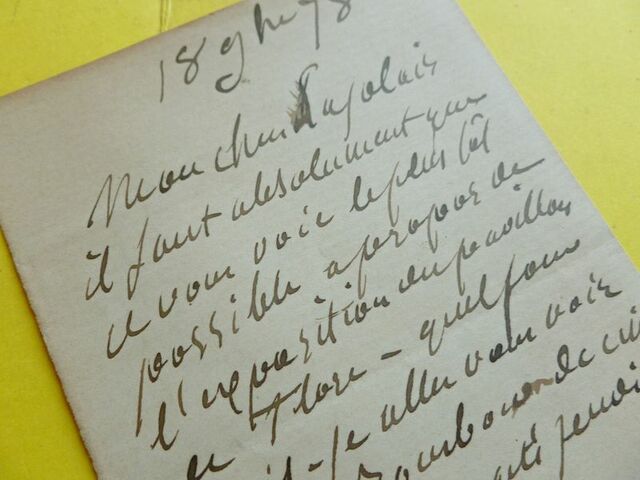 18 9bre 78
Mon cher Lagolais
il faut absolument que
je vous voie le plus tôt
possible à propos de
l'exposition du pavillon
de Flore - quel jour
-je aller vous voir
de